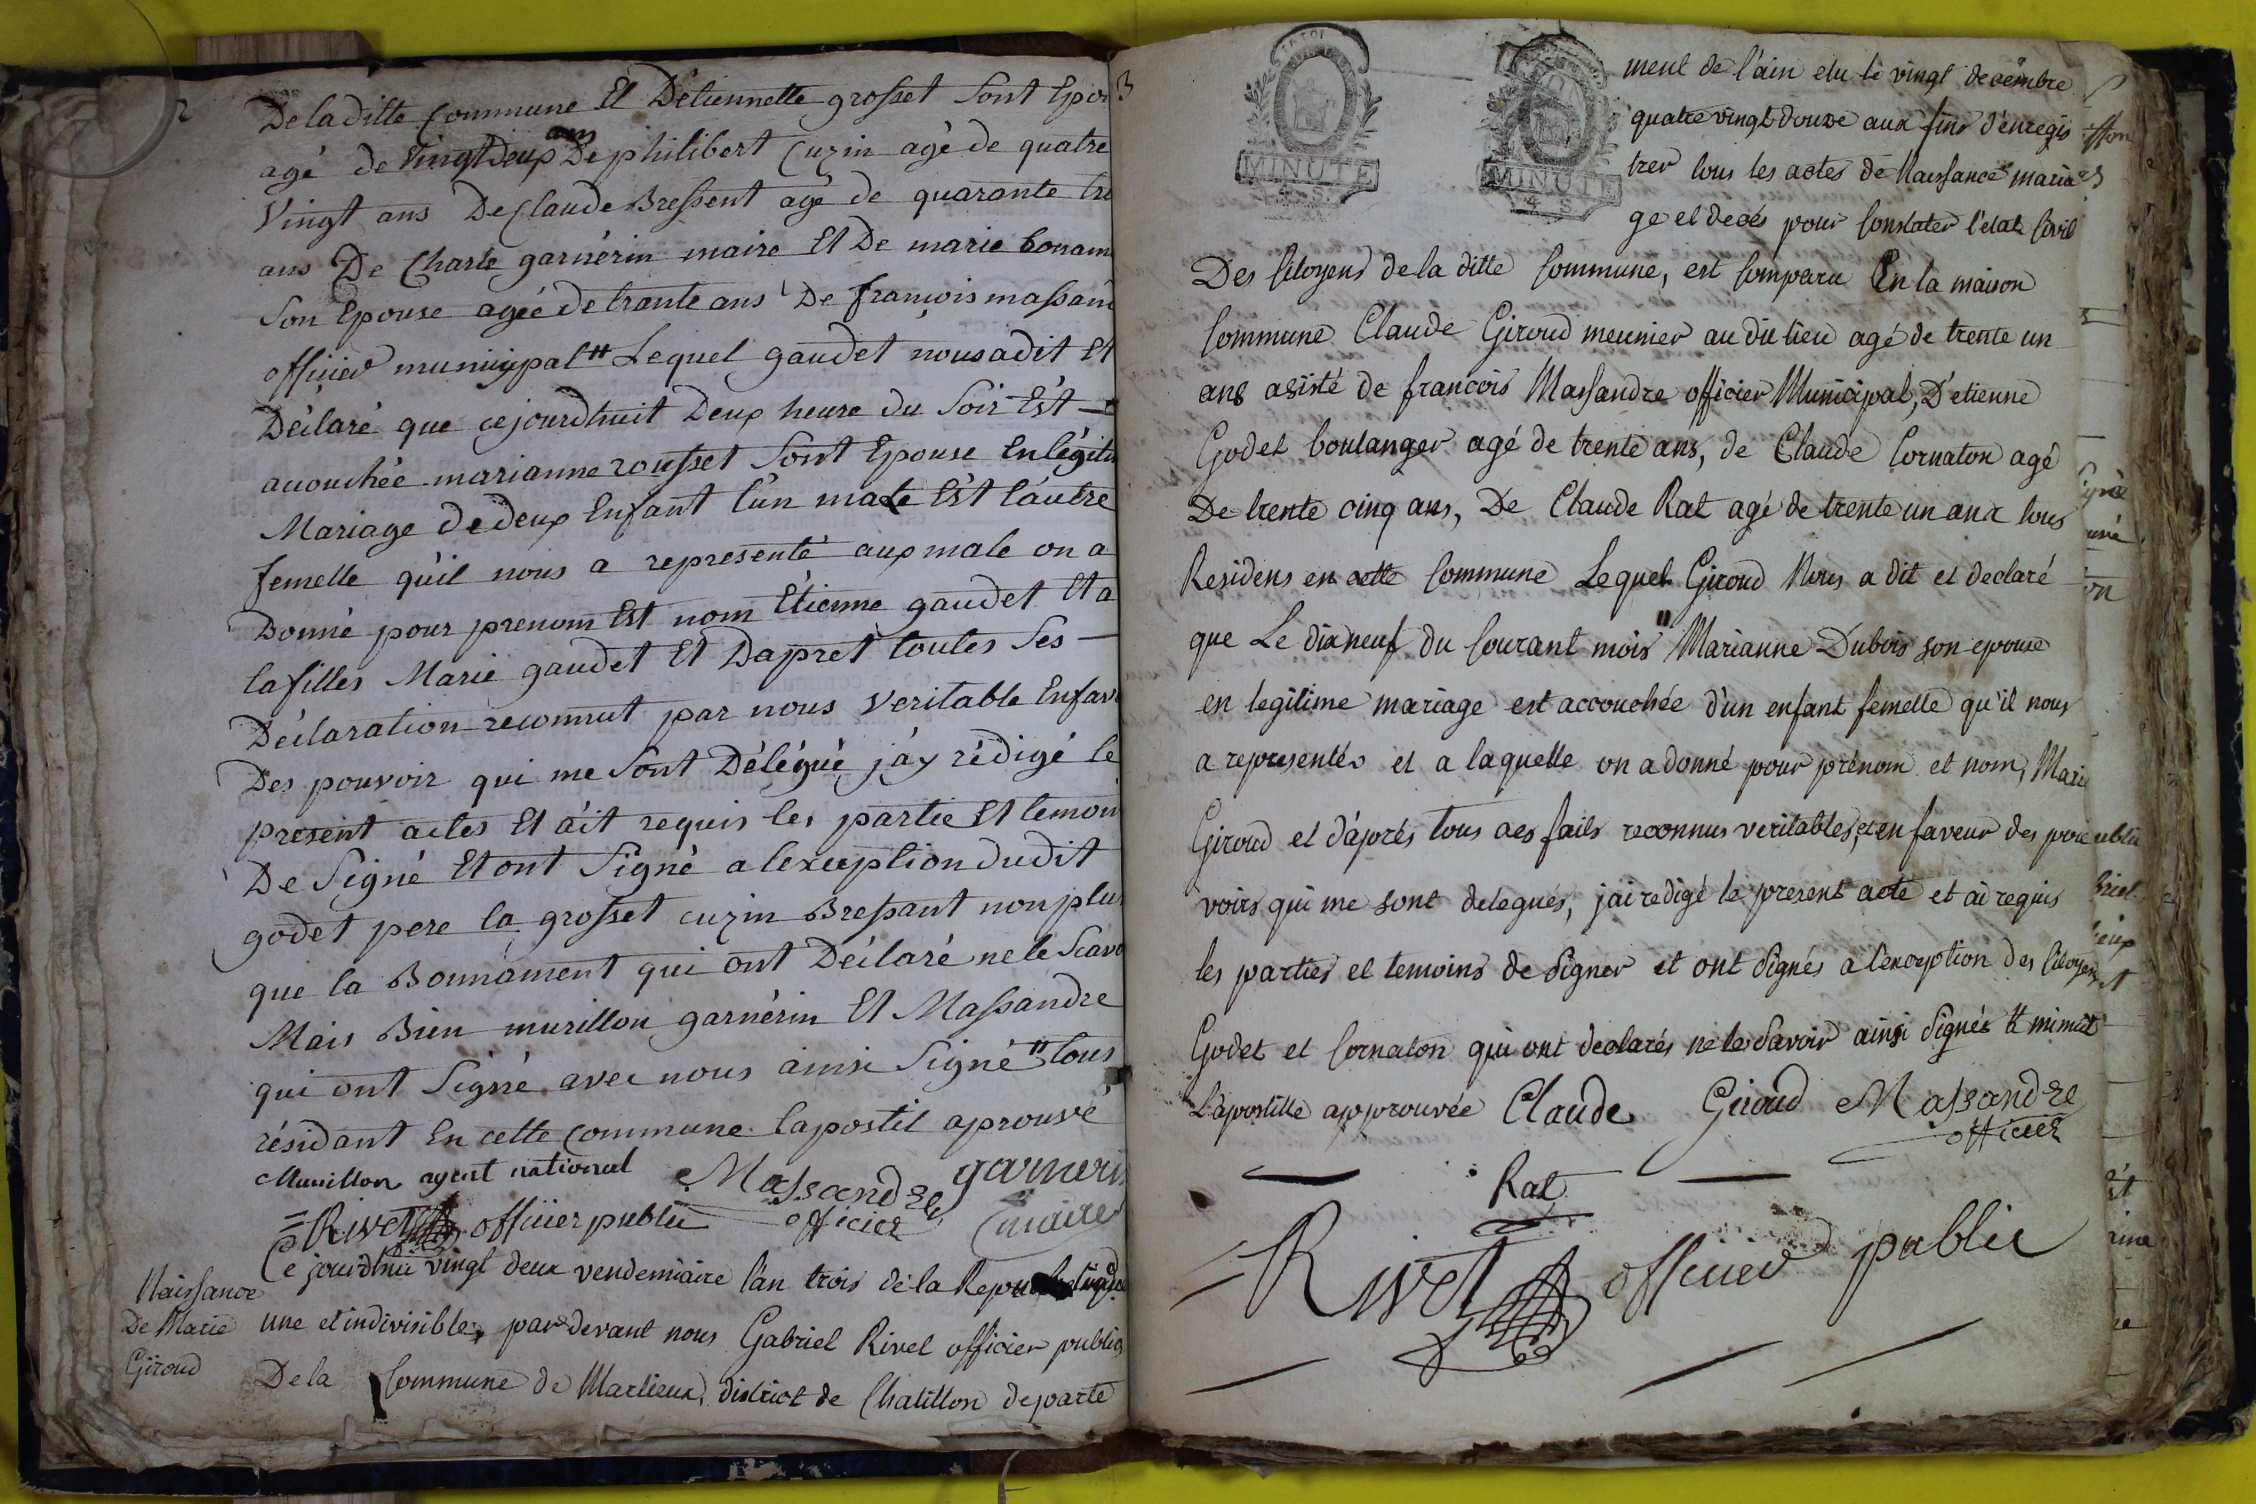 2
De la ditte Commune Et Detiennette grosset Sont Epou
agé de vingt Deux ans De philibert Cuzin agè de quatre
Vingt ans De Claude Bressent agé de quarante tro
ans De Charle garnérin maire Et De marie bonam
Son Epouse agée de trante ans De françois massan
officier municipal # Lequel gaudet nous a dit Et
Déclaré que cejourdhuit Deux heure du Soir Est —
acouchée marianne rousset Sont Epouse En légiti
Mariage de deux Enfant l'un male Est l'autre
femelle qu'il nous a representé aux male on a
Donné pour prenom Est nom Étienne gaudet Et a
la filles Marie gaudet Et Dapret toutes Ses —
Déclaration reconnut par nous veritable Enfav
Des pouvoir qui me Sont Délégué j'ay rédigé le
present actes Et ait requis les partie Et temoin
De Signé Et ont Signé a lexception dudit
godet pere la grosset cuzin Bressant non plus
que la Bonnament qui ont Déclaré ne le Scavo
Mais Bien murillon garnérin Et Massandre
qui ont Signé avec nous ainsi Signé # tous
résidant En cette Commune lapostil aprouvé
Murillon agent national Massandre garnerin
= Rivet officier public officier maire
Naissance
De Marie
Giroud
Ce jourdhui vingt deux vendemiaire l'an trois de la Repu
une et indivisible, par devant nous Gabriel Rivet officier public
De la Commune de Marlieux, district de Chatillon departe
3
MINUTE
4 S
MINUTE
4 S
ment de l'ain elu le vingt decembre
quatre vingt douze aux fins d'enregis
trer tous les actes de Naissance maria
ge et decés pour Constater l'etat Civil
Des Citoyens de la ditte Commune, est Comparu En la maison
Commune Claude Giroud meunier au dit lieu agé de trente un
ans asisté de francois Massandre officier Municipal, D'etienne
Godet boulanger agé de trente ans, de Claude Cornaton agé
De trente cinq ans, De Claude Rat agé de trente un ans tous
Residens en cette Commune Lequel Giroud Nous a dit et declaré
que Le dix neuf du Courant mois " Marianne Dubois son epouse
en legitime mariage est accouchée d'un enfant femelle qu'il nous
a representée et a laquelle on a donné pour prénom et nom, Marie
Giroud et d'aprés tous ces faits reconnus veritables, et en faveur des pou
voirs qui me sont delegués, j'ai redigé le present acte et ai requis
les parties et temoins de Signer et ont Signés a l'exception des Citoyens
Godet et Cornaton qui ont declarés ne le Savoir ainsi Signés # minut
L'apostille approuvée Claude Giroud Massandre
officier
Rat
= Rivet officier public